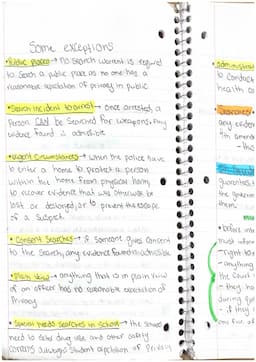 Some exceptions
• Public places → no search warrent is requird
to search a public place as no one has a
reasonable expectation of privacy in public.
• Search incident to arrest → once arrested, a
person CAN be searched for weapons. Any
evidence found is admissible
• Urgent Circumstances → when the police have
to enter a home to protect a person
within the home from physical harm,
to recover evidence that was otherwise be
lost or destroyed, or to prevent the escape
of a suspect.
• Consent Searches → if someone gives consent
to the search, any evidence found is admissible
• Plain View → anything that is in plain view
of an officer has no reasonable expectation of
privacy
• Special needs searches in School → the school
need to deter drug use and other safety
concerns outweighs student expectation of privacy
to conduct
health co
• Searches
any eviden
4th amend
guarantees t
the governm
them
• before int
must infor
- right to
- anything
the court
- they ha
during qu
- if they